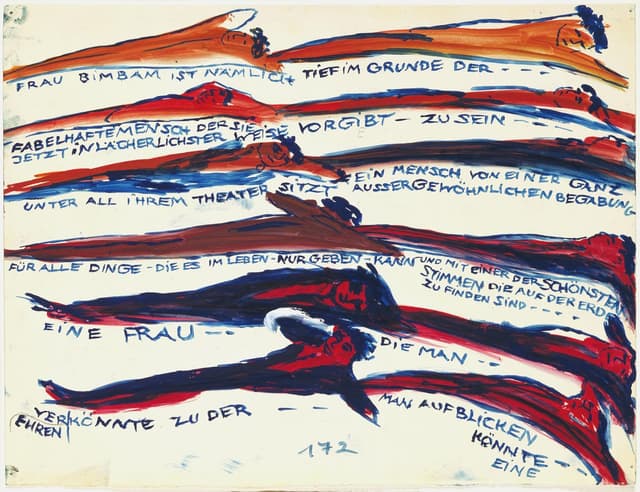 FRAU BIMBAM IST NÄMLICH TIEF IM GRUNDE DER - - - -
FABELHAFTE MENSCH DER SIE VORGIBT - ZU SEIN - - - -
JETZT IN LÄCHERLICHSTER WEISE
UNTER ALL IHREM THEATER SITZT EIN MENSCH VON EINER GANZ
AUSSERGEWÖHNLICHEN BEGABUNG
FÜR ALLE DINGE - DIE ES IM LEBEN - NUR GEBEN - KANN UND MIT EINER DER SCHÖNSTEN
STIMMEN DIE AUF DER ERDE
ZU FINDEN SIND - - - -
EINE FRAU - - - DIE MAN - - -
VERKÖNNTE ZU DER - - - MAN AUFBLICKEN
(EHREN) KÖNNTE - -
EINE
172